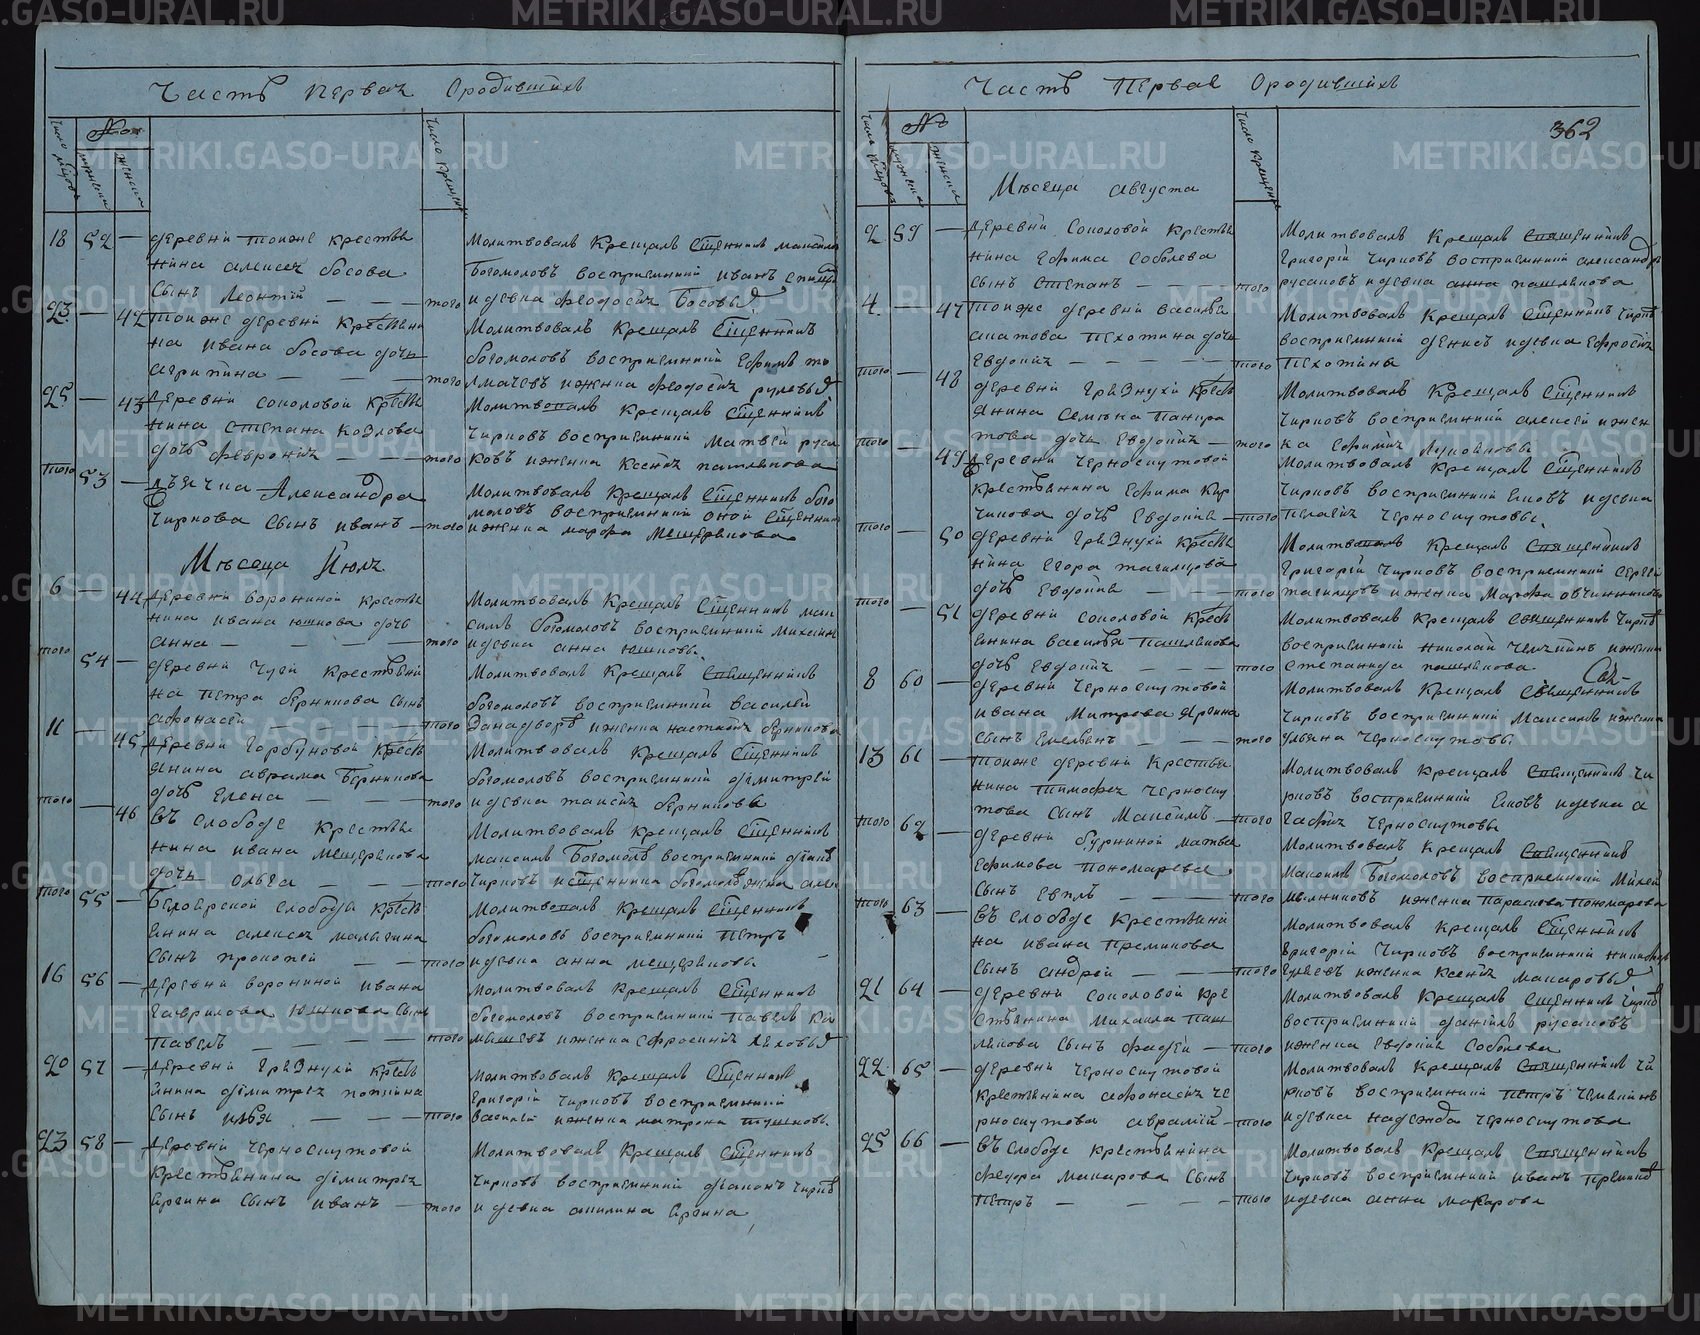 Часть первая о родившихся
Число рожден
№
мужеска
женска
Число крещен
18 52 — деревни тояже крестья
нина алексея босова
сынъ леонтий — — — того
Молитвовалъ крещалъ Сщенникъ максимъ
Богомоловъ восприемники иванъ
и девка феодосия босовы
23 — 42 тояже деревни крестьяни
на ивана босова дочь
агрипина — — — того
Молитвовалъ крещалъ Сщенникъ
богомоловъ восприемники ефимъ то
лмачевъ и женка феодосия
25 — 43 деревни соколовой кресть
нина степана козлова
дочь феврония — — — того
Молитвовалъ крещалъ Сщенникъ
Чирковъ восприемники матвей руса
ковъ и женка ксения пашлякова
того 53 — дьячка Александра
Чиркова сынъ иванъ — того
Молитвовалъ крещалъ Сщенникъ бого
моловъ восприемники оной Сщенникъ
и женка марфа мещерякова
Месяца Июля
6 — 44 деревни ворониной крестья
нина ивана южкова дочь
анна — — — — того
Молитвовалъ крещалъ Сщенникъ мак
симъ богомоловъ восприемники михаилъ
и девка анна южковы
того 54 — деревни крестьяни
на петра берникова сынъ
афонасей — — — того
Молитвовалъ крещалъ Священникъ
богомоловъ восприемники василей
и женка настасия берникова
11 — 45 деревни горбуновой кресть
янина аврама берникова
дочь елена — — — того
Молитвовалъ крещалъ Сщенникъ
богомоловъ восприемники димитрей
и девка таисия берниковы
того — 46 въ слободе крестья
нина ивана мещерякова
дочь ольга — — — того
Молитвовалъ крещалъ Сщенникъ
максимъ богомоловъ восприемники
чирковъ и сщенника богомолова жена
того 55 — белоярской слободы кресть
янина алексея малыгина
сынъ прокопей — — того
Молитвовалъ крещалъ Сщенникъ
богомоловъ восприемники петръ
и девка анна мещеряковы
16 56 — деревни ворониной ивана
гаврилова южкова сынъ
павелъ — — — — того
Молитвовалъ крещалъ Сщенникъ
богомоловъ восприемники павелъ
и женка ефросиния
20 57 — деревни грязнухи кресть
янина димитрея
сынъ илья — — — того
Молитвовалъ крещалъ Сщенникъ
григорий чирковъ восприемники
василей и женка матрона
23 58 — деревни черноскутовой
крестьянина димитрея
ергина сынъ иванъ — того
Молитвовалъ крещалъ Сщенникъ
Чирковъ восприемники чирковъ
и девка акилина ергина
Часть первая о родившихся
362
Число рожден
№
мужеска
женска
Число крещен
Месяца августа
2 59 — деревни соколовой крестья
нина ефима соболева
сынъ степанъ — — — того
Молитвовалъ крещалъ Священникъ
григорий чирковъ восприемники александръ
русаковъ и девка анна пашлякова
4 — 47 тояже деревни василья
ипатова пехотина дочь
евдокия — — — — того
Молитвовалъ крещалъ Сщенникъ чирковъ
восприемники денисъ и девка ефросия
пехотины
того — 48 деревни грязнухи кресть
янина семена
дочь евдокия — того
Молитвовалъ крещалъ Сщенникъ
чирковъ восприемники алексей и жен
ка ефимия
того — 49 деревни черноскутовой
крестьянина ефима
дочь евдокия — того
Молитвовалъ крещалъ Сщенникъ
чирковъ восприемники яковъ и девка
пелагия черноскутовы
того — 50 деревни грязнухи крестья
нина егора тагильцова
дочь евдокия — — того
Молитвовалъ крещалъ Священникъ
григорий чирковъ восприемники сергей
тагильцовъ и женка марфа овчинникова
того — 51 деревни соколовой кресть
янина василья пашлякова
дочь евдокия — — того
Молитвовалъ крещалъ Священникъ чирковъ
восприемники николай и женка
степанида пашлякова
8 60 — деревни черноскутовой
ивана митрева ергина
сынъ емельянъ — — того
Молитвовалъ крещалъ Священникъ
чирковъ восприемники максимъ и женка
ульяна черноскутовы
13 61 — тояже деревни крестья
нина тимофея черноску
това сынъ максимъ — того
Молитвовалъ крещалъ Священникъ чи
рковъ восприемники яковъ и девка а
гафия черноскутовы
того 62 — деревни буркиной матвея
ефимова пономарева
сынъ — — — того
Молитвовалъ крещалъ Священникъ
максимъ богомоловъ восприемники
мельниковъ и женка параскова пономарева
того 63 — въ слободе крестьяни
на ивана премикова
сынъ андрей — — — того
Молитвовалъ крещалъ Сщенникъ
григорий чирковъ восприемники
и женка ксения макаровы
21 64 — деревни соколовой кре
стьянина михаила паш
лякова сынъ фадей — того
Молитвовалъ крещалъ Сщенникъ чирковъ
восприемники данилъ русаковъ
и женка евдокия соболева
22 65 — деревни черноскутовой
крестьянина афонасия че
рноскутова авраамий — того
Молитвовалъ крещалъ Священникъ чи
рковъ восприемники петръ
и девка надежда черноскутова
25 66 — въ слободе крестьянина
федора макарова сынъ
петръ — — — того
Молитвовалъ крещалъ Священникъ
чирковъ восприемники иванъ
и девка анна макарова
METRIKI.GASO-URAL.RU